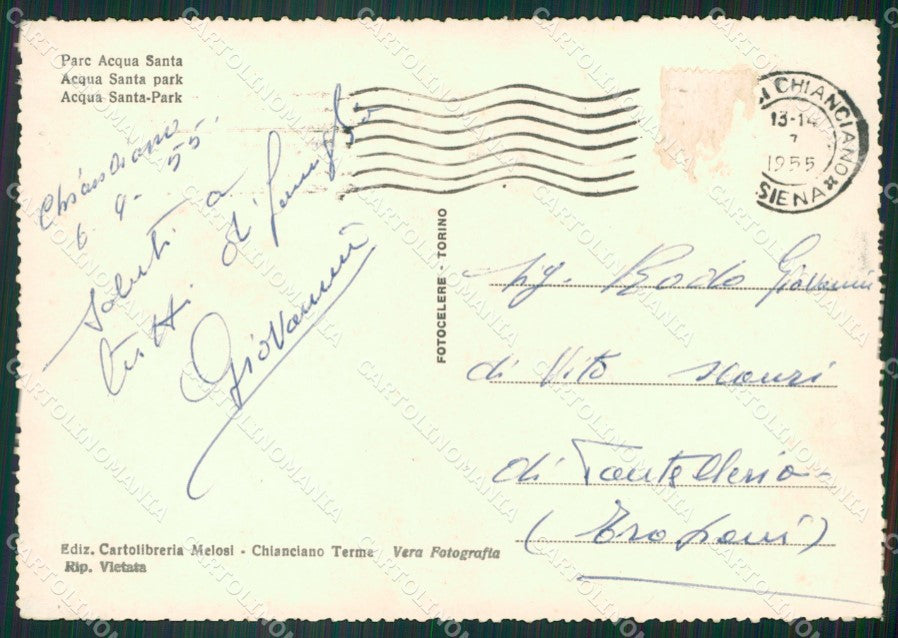 Parc Acqua Santa
Acqua Santa park
Acqua Santa-Park
Chianciano
6-9-55.
Saluti a
tutti di famiglia
Giovanni
FOTOCELERE - TORINO
CHIANCIANO
13-14
1955
SIENA
Sig. Bodo Giovanni
di Vito
di Pantelleria
(Trapani)
Ediz. Cartolibreria Melosi - Chianciano Terme Vera Fotografia
Rip. Vietata
CARTOLINOMANIA